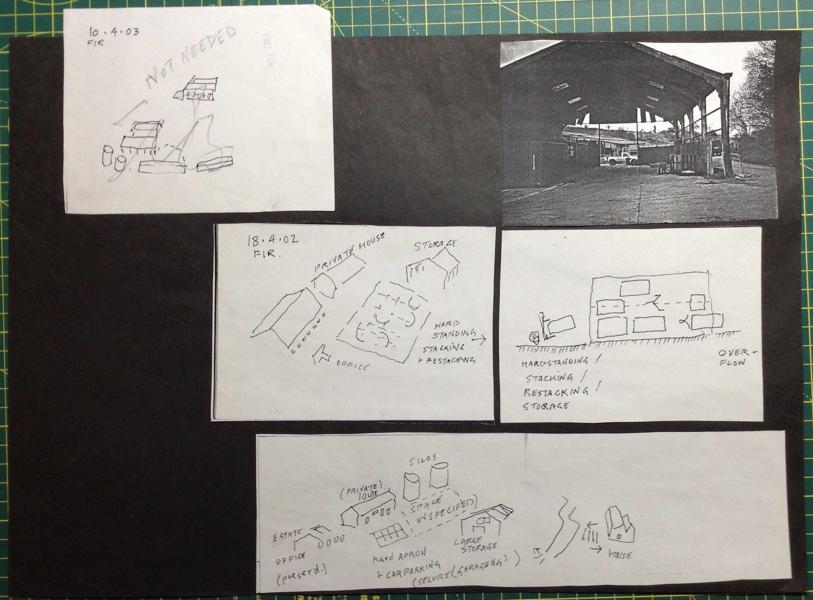 10.4.03
FIR
NOT NEEDED
18.4.02
FIR.
PRIVATE HOUSE
STORAGE
OFFICE
HARD
STANDING
STACKING
+ RESTACKING
HARDSTANDING /
STACKING /
RESTACKING /
STORAGE
OVER-
FLOW
SILOS
(PRIVATE)
HOUSE
SPACE
UNSPECIFIED
ESTATE
OFFICE
HARD APRON
+ CARPARKING
(SECURE (GARAGING)
LARGE
STORAGE
HOUSE